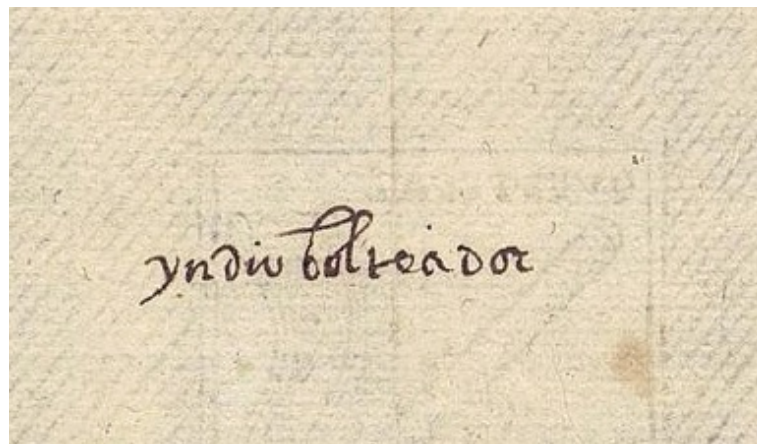 yndio bolteador